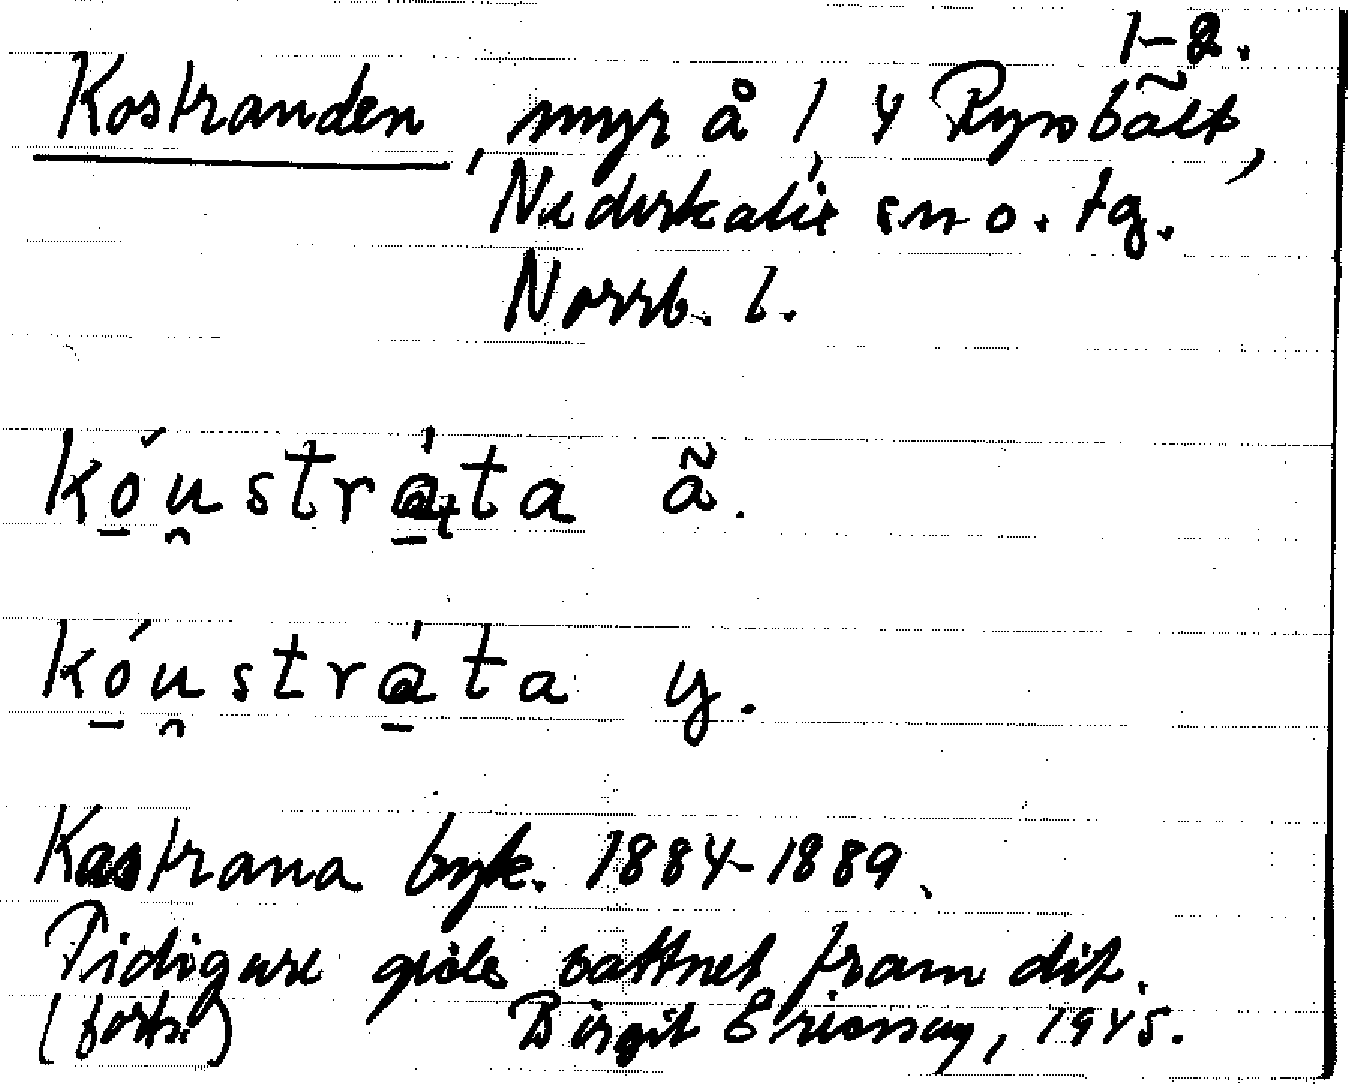 1-2.
Kostranden, myr å 1, 4 Rynbält,
Nederkalix sn o. tg.
Norrb. l.
kó̠u̯strá̠ta ã.
kó̠u̯strá̠ta y.
Kastrana byk. 1884-1889.
Tidigare gick vattnet fram dit.
(forts) Birgit Ericsson, 1945.